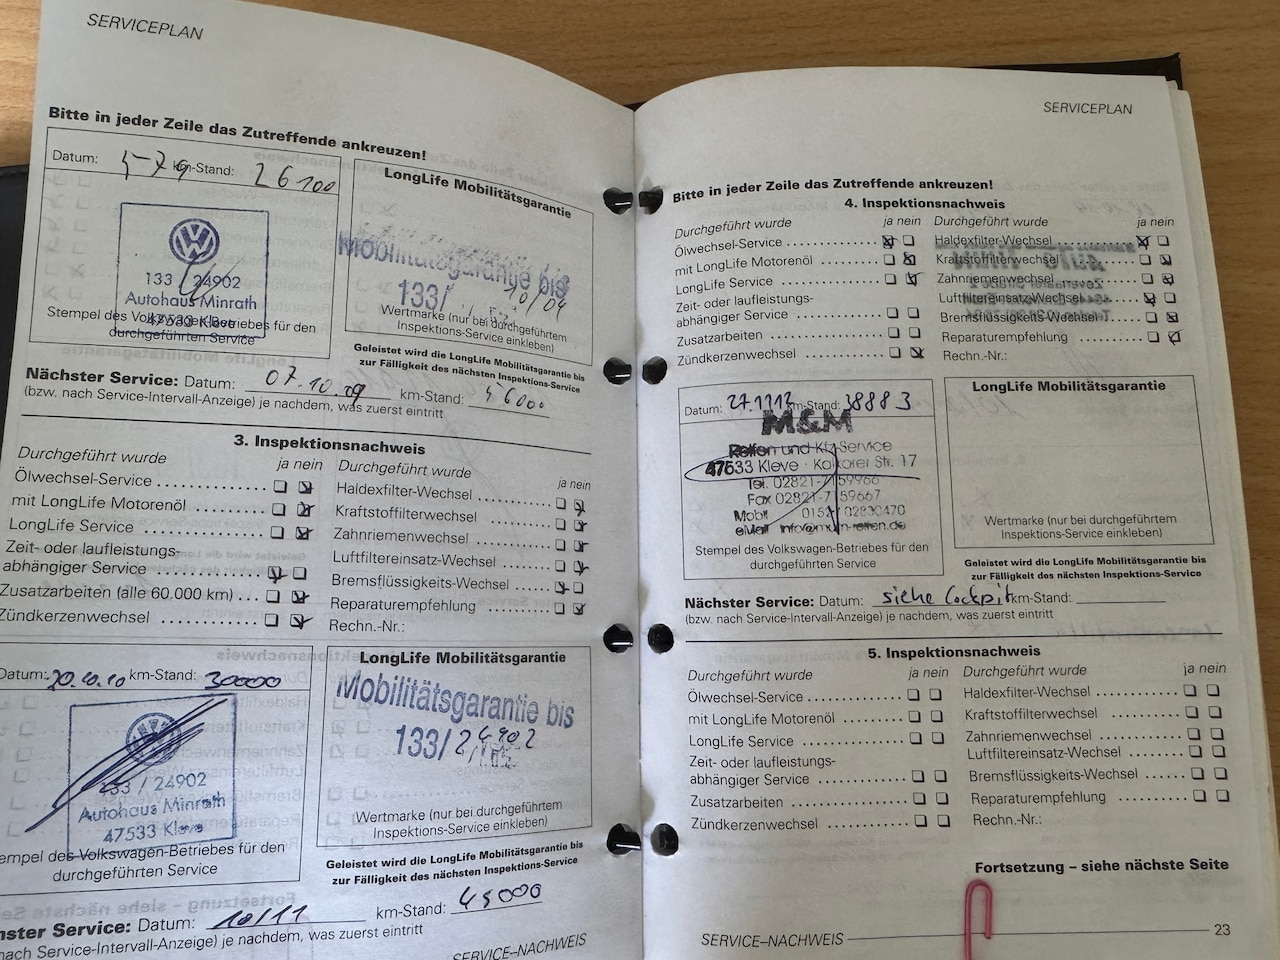 SERVICEPLAN
Bitte in jeder Zeile das Zutreffende ankreuzen!
Datum: km-Stand: 26100
133 / 24902
Autohaus Minrath
47533 Kleve
Stempel des Volkswagen-Betriebes für den
durchgeführten Service
LongLife Mobilitätsgarantie
Mobilitätsgarantie bis
133/ 10/09
Wertmarke (nur bei durchgeführtem
Inspektions-Service einkleben)
Geleistet wird die LongLife Mobilitätsgarantie bis
zur Fälligkeit des nächsten Inspektions-Service
Nächster Service: Datum: 07.10.09 km-Stand: 56000
(bzw. nach Service-Intervall-Anzeige) je nachdem, was zuerst eintritt
3. Inspektionsnachweis
Durchgeführt wurde ja nein
Ölwechsel-Service
mit LongLife Motorenöl
LongLife Service
Zeit- oder laufleistungs-
abhängiger Service
Zusatzarbeiten (alle 60.000 km)
Zündkerzenwechsel
Durchgeführt wurde ja nein
Haldexfilter-Wechsel
Kraftstoffilterwechsel
Zahnriemenwechsel
Luftfiltereinsatz-Wechsel
Bremsflüssigkeits-Wechsel
Reparaturempfehlung
Rechn.-Nr.:
Datum: 20.10.10 km-Stand: 30000
133 / 24902
Autohaus Minrath
47533 Kleve
empel des Volkswagen-Betriebes für den
durchgeführten Service
LongLife Mobilitätsgarantie
Mobilitätsgarantie bis
133/24902
(Wertmarke (nur bei durchgeführtem
Inspektions-Service einkleben)
Geleistet wird die LongLife Mobilitätsgarantie bis
zur Fälligkeit des nächsten Inspektions-Service
hster Service: Datum: 10/11 km-Stand: 45000
nach Service-Intervall-Anzeige) je nachdem, was zuerst eintritt
SERVICE–NACHWEIS
SERVICEPLAN
Bitte in jeder Zeile das Zutreffende ankreuzen!
4. Inspektionsnachweis
Durchgeführt wurde ja nein
Ölwechsel-Service
mit LongLife Motorenöl
LongLife Service
Zeit- oder laufleistungs-
abhängiger Service
Zusatzarbeiten
Zündkerzenwechsel
Durchgeführt wurde ja nein
Haldexfilter-Wechsel
Kraftstoffilterwechsel
Zahnriemenwechsel
Luftfiltereinsatz-Wechsel
Bremsflüssigkeits-Wechsel
Reparaturempfehlung
Rechn.-Nr.:
Datum: 27.1112 km-Stand: 38883
M&M
Reifen und Kfz-Service
47533 Kleve · Kalkarer Str. 17
Tel. 02821-7159966
Fax 02821-7159667
Mobil 0152/02830470
eMail info@mum-reifen.de
Stempel des Volkswagen-Betriebes für den
durchgeführten Service
LongLife Mobilitätsgarantie
Wertmarke (nur bei durchgeführtem
Inspektions-Service einkleben)
Geleistet wird die LongLife Mobilitätsgarantie bis
zur Fälligkeit des nächsten Inspektions-Service
Nächster Service: Datum: siehe Cockpit km-Stand:
(bzw. nach Service-Intervall-Anzeige) je nachdem, was zuerst eintritt
5. Inspektionsnachweis
Durchgeführt wurde ja nein
Ölwechsel-Service
mit LongLife Motorenöl
LongLife Service
Zeit- oder laufleistungs-
abhängiger Service
Zusatzarbeiten
Zündkerzenwechsel
Durchgeführt wurde ja nein
Haldexfilter-Wechsel
Kraftstoffilterwechsel
Zahnriemenwechsel
Luftfiltereinsatz-Wechsel
Bremsflüssigkeits-Wechsel
Reparaturempfehlung
Rechn.-Nr.:
Fortsetzung – siehe nächste Seite
SERVICE–NACHWEIS 23